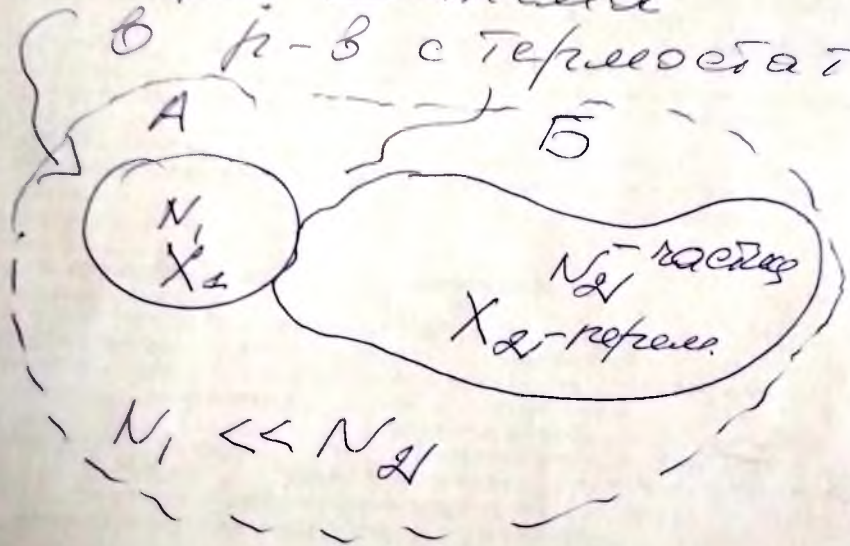 в р-в с термостат
А
Б
N₁
X₁
N₂ - частиц
X₂ - перем.
N₁ << N₂